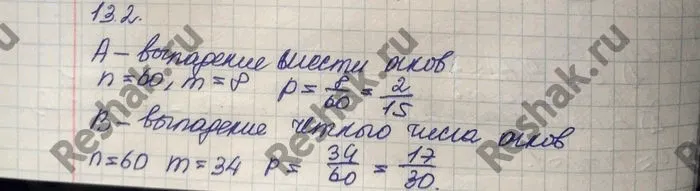 13.2.
A – выпадение шести очков
n=60, m=8 p = 8/60 = 2/15
B – выпадение четного числа очков
n=60 m=34 p = 34/60 = 17/30.
Reshak.ru
Reshak.ru
Reshak.ru
Reshak.ru